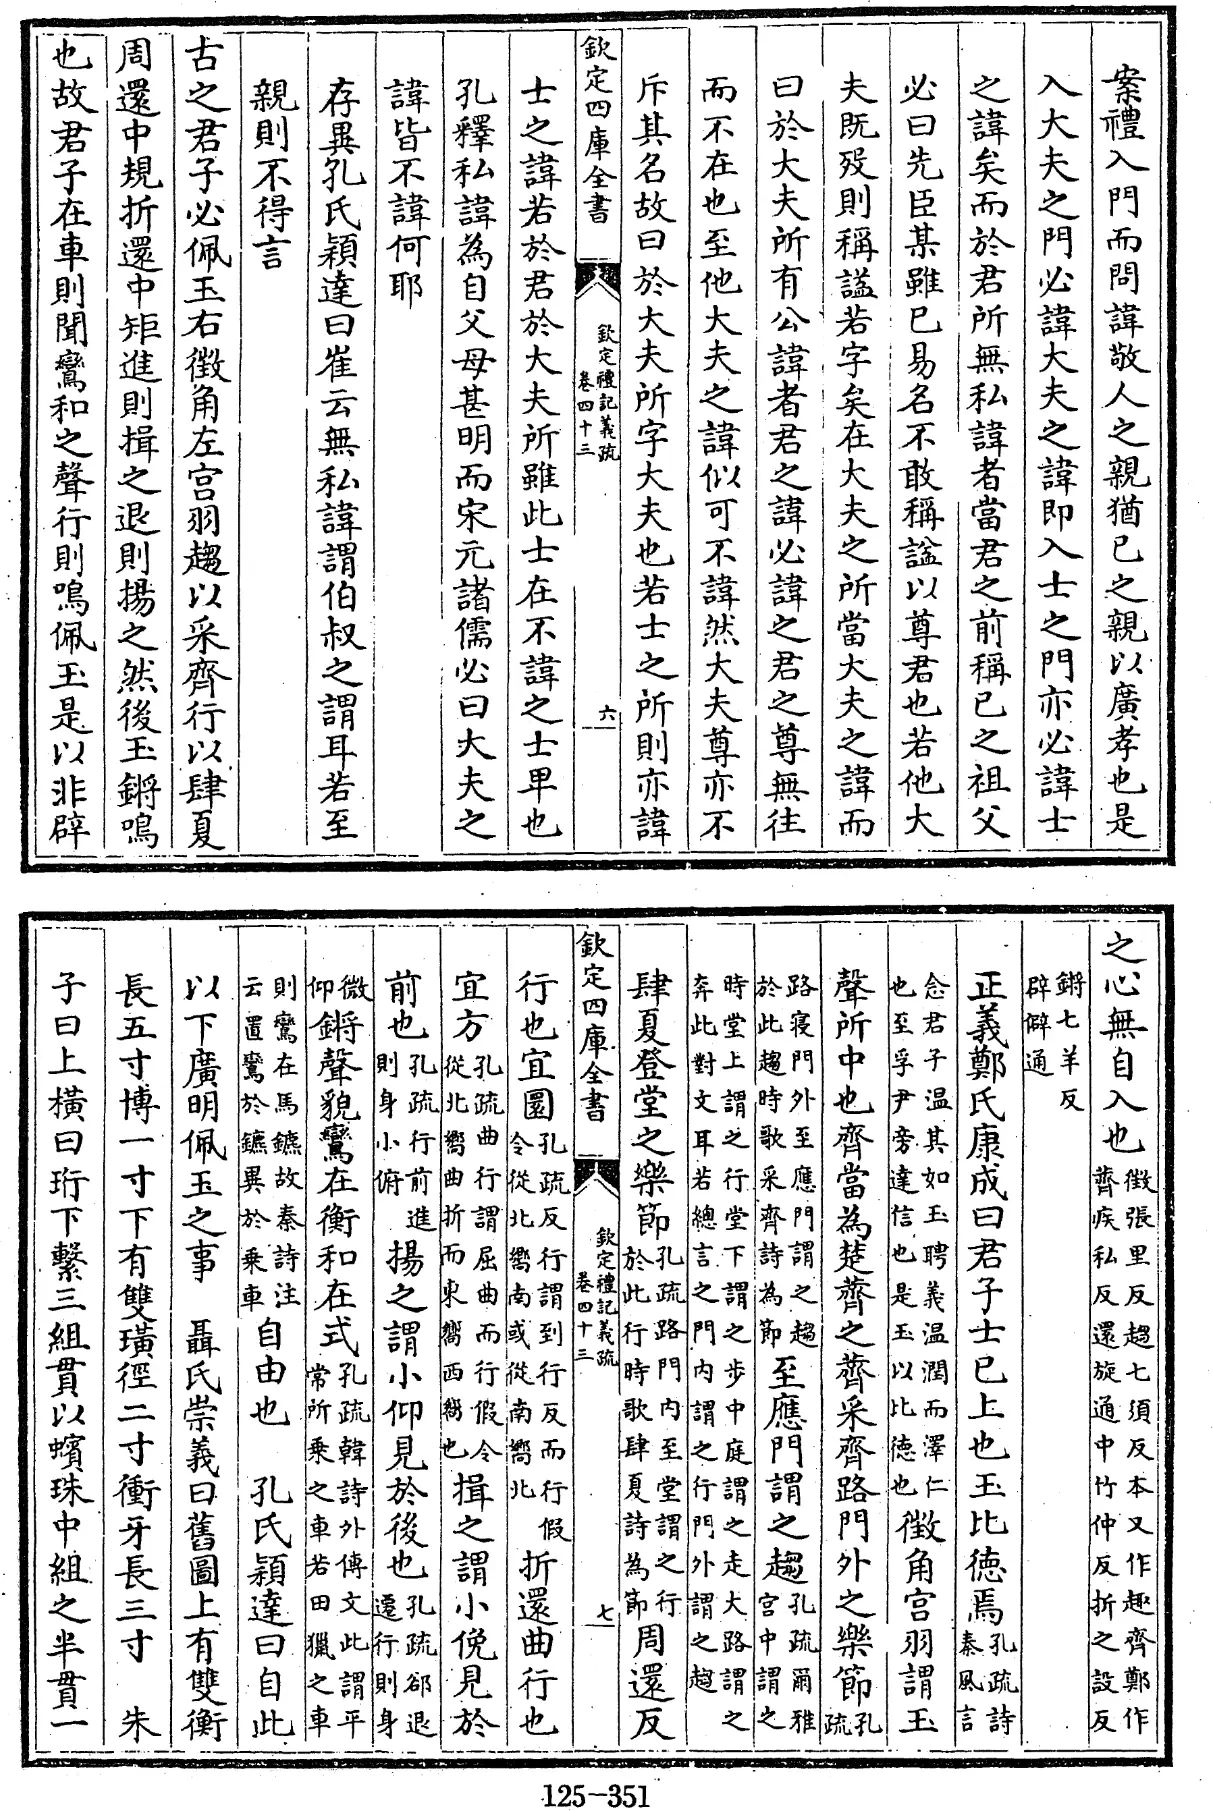 案禮入門而問諱敬人之親猶己之親以廣孝也是
入大夫之門必諱大夫之諱即入士之門亦必諱士
之諱矣而於君所無私諱者當君之前稱己之祖父
必曰先臣某雖已易名不敢稱諡以尊君也若他大
夫既歿則稱諡若字矣在大夫之所當大夫之諱而
曰於大夫所有公諱者君之諱必諱之君之尊無往
而不在也至他大夫之諱似可不諱然大夫尊亦不
斥其名故曰於大夫所字大夫也若士之所則亦諱
欽定四庫全書
欽定禮記義疏
卷四十三
六
士之諱若於君於大夫所雖此士在不諱之士卑也
孔釋私諱為自父母甚明而宋元諸儒必曰大夫之
諱皆不諱何耶
存異孔氏穎達曰崔云無私諱謂伯叔之謂耳若至
親則不得言
古之君子必佩玉右徵角左宫羽趨以采齊行以肆夏
周還中規折還中矩進則揖之退則揚之然後玉鏘鳴
也故君子在車則聞鸞和之聲行則鳴佩玉是以非辟
之心無自入也徵張里反趨七須反本又作趣齊鄭作
薺疾私反還旋通中竹仲反折之設反
鏘七羊反
辟僻通
正義鄭氏康成曰君子士已上也玉比德焉孔疏詩
秦風言
念君子温其如玉聘義温潤而澤仁
也至孚尹旁達信也是玉以比德也徵角宫羽謂玉
聲所中也齊當為楚薺之薺采齊路門外之樂節孔
疏
路寝門外至應門謂之趨
於此趨時歌采齊詩為節至應門謂之趨孔疏爾雅
宫中謂之
時堂上謂之行堂下謂之步中庭謂之走大路謂之
奔此對文耳若總言之門内謂之行門外謂之趨
肆夏登堂之樂節孔疏路門内至堂謂之行
於此行時歌肆夏詩為節周還反
欽定四庫全書
欽定禮記義疏
卷四十三
七
行也宜圜孔疏反行謂到行反而行假
令從北嚮南或從南嚮北折還曲行也
宜方孔疏曲行謂屈曲而行假令
從北嚮曲折而東嚮西嚮也揖之謂小俛見於
前也孔疏行前進
則身小俯揚之謂小仰見於後也孔疏郤退
還行則身
微
仰鏘聲貌鸞在衡和在式孔疏韓詩外傳文此謂平
常所乘之車若田獵之車
則鸞在馬鑣故秦詩注
云置鸞於鑣異於乘車自由也　孔氏穎達曰自此
以下廣明佩玉之事　聶氏崇義曰舊圖上有雙衡
長五寸博一寸下有雙璜徑二寸衝牙長三寸　朱
子曰上橫曰珩下繫三組貫以蠙珠中組之半貫一
125-351